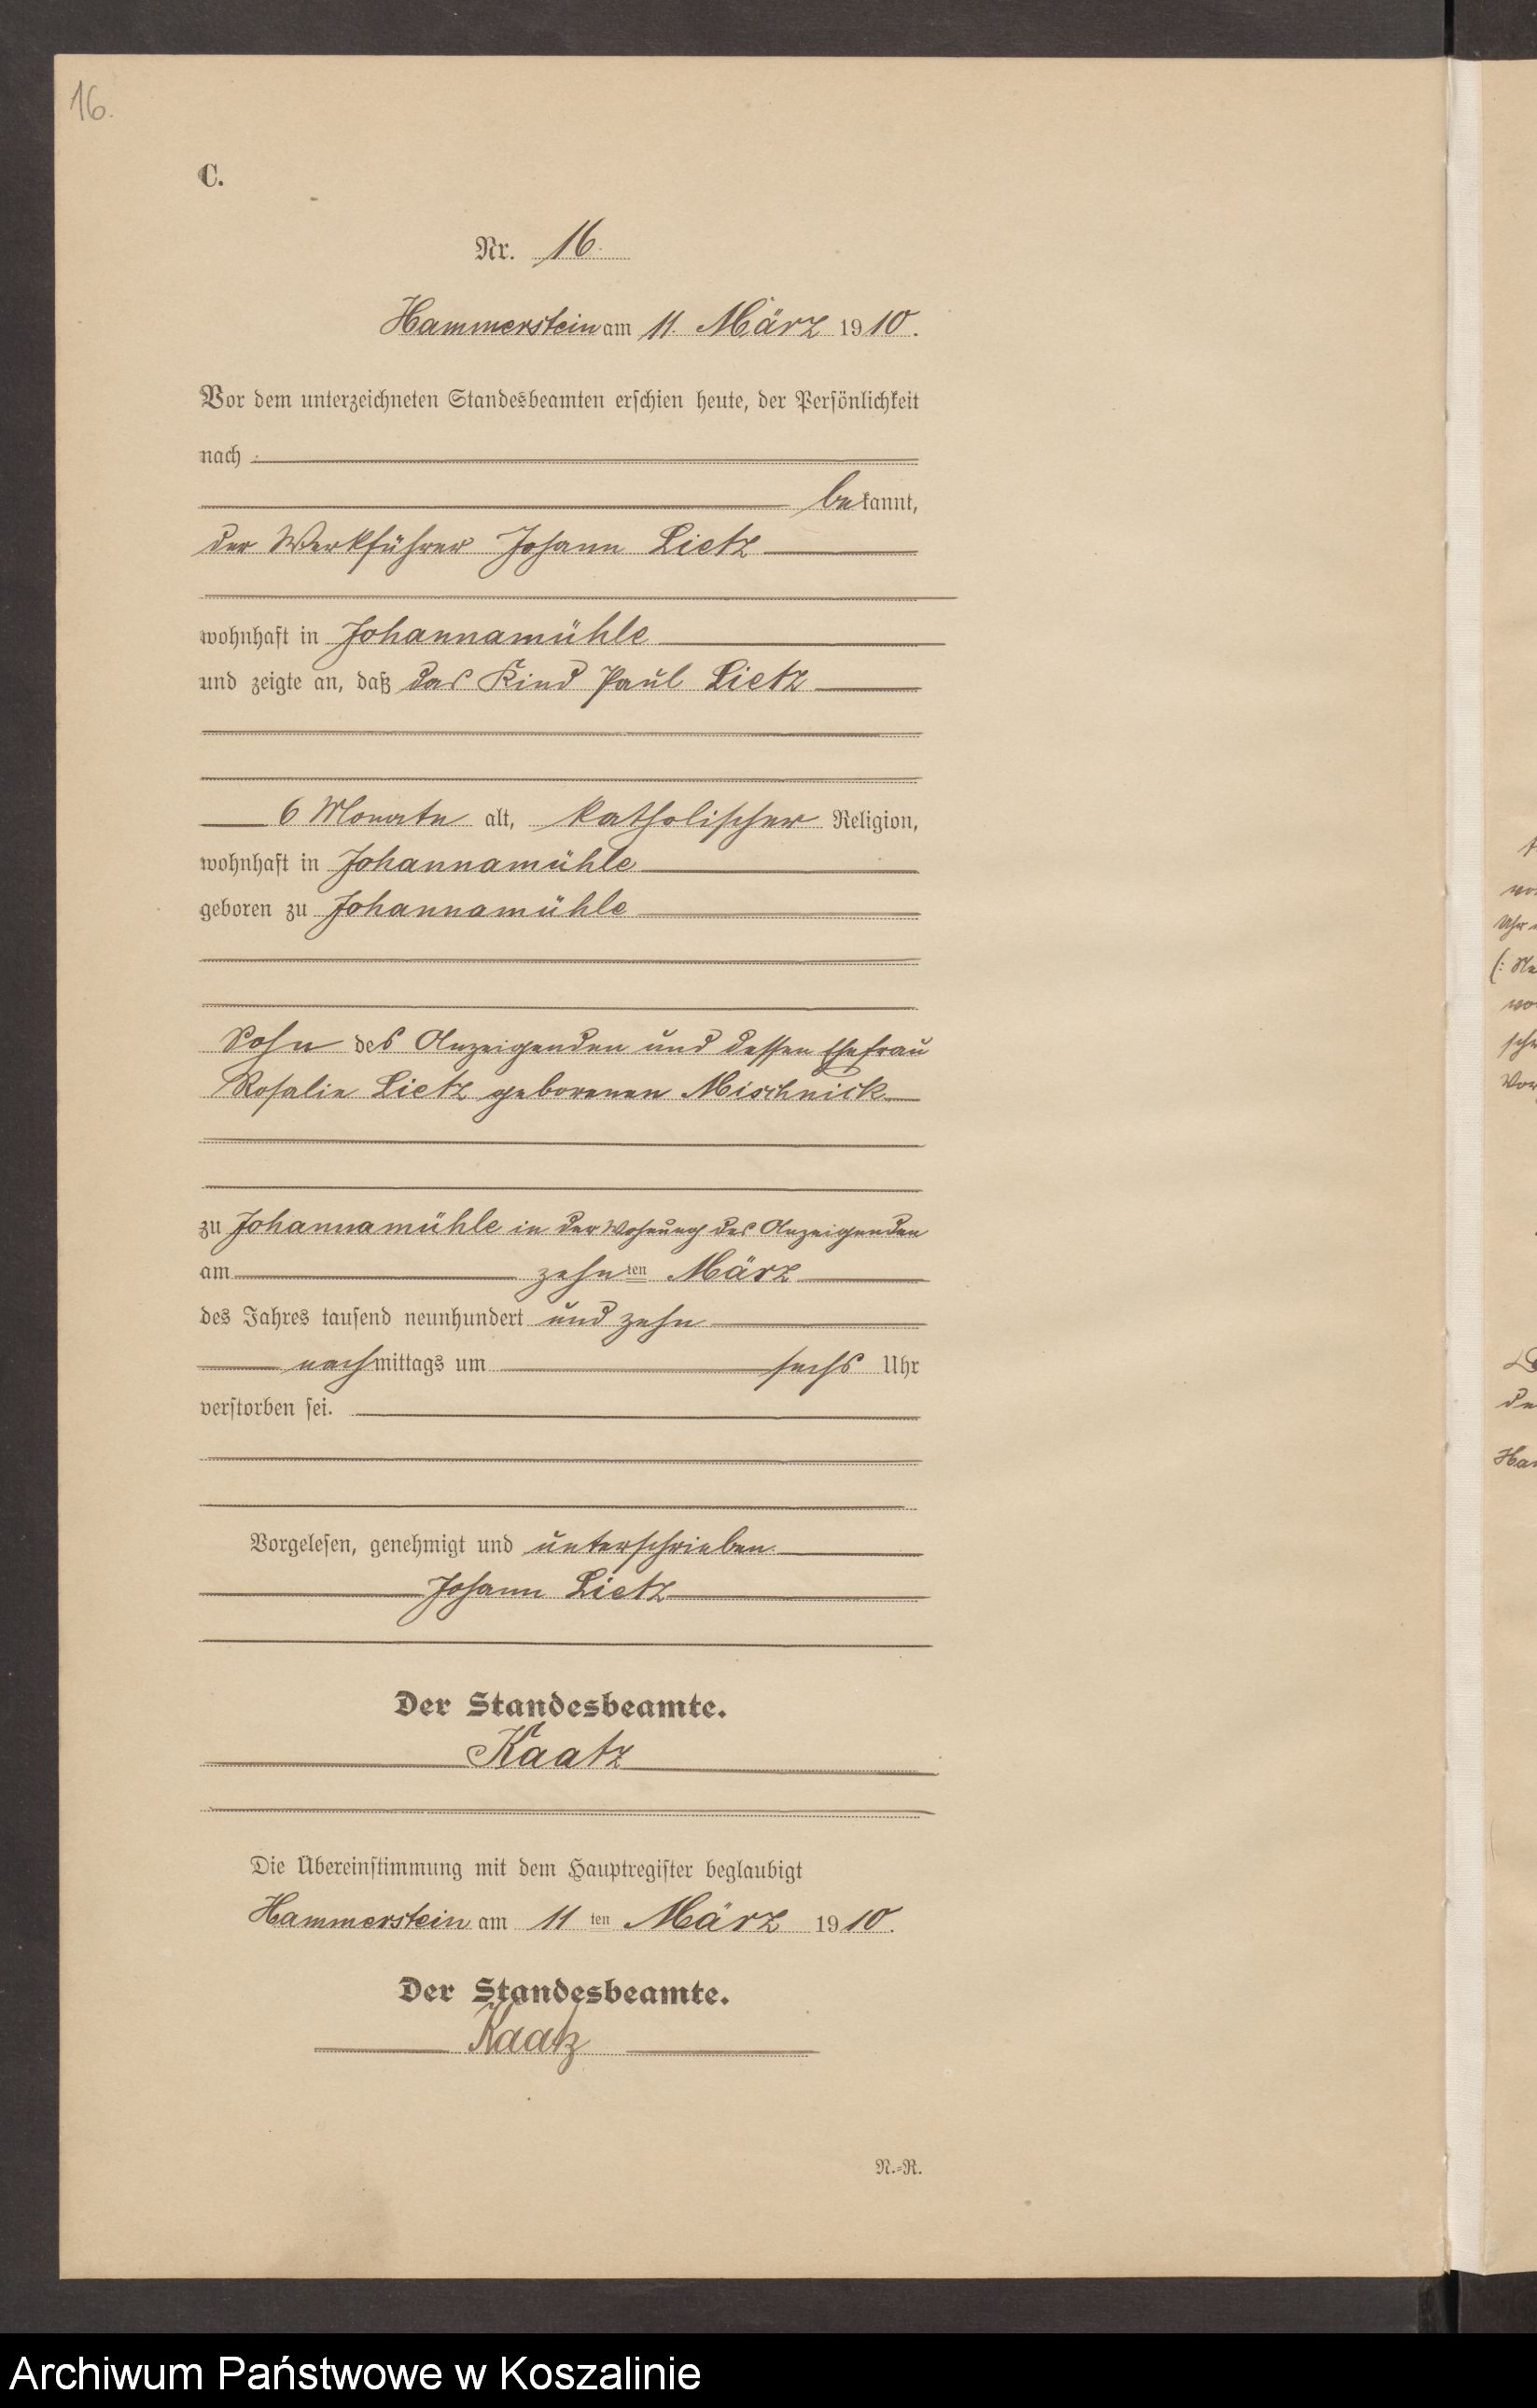 16.
C.
Nr. 16.
Hammerstein am 11. März 1910.
Vor dem unterzeichneten Standesbeamten erschien heute, der Persönlichkeit
nach
bekannt,
der Werkführer Johann Lietz
wohnhaft in Johannamühle
und zeigte an, daß das Kind Paul Lietz
6 Monate alt, katholischer Religion,
wohnhaft in Johannamühle
geboren zu Johannamühle
Sohn des Anzeigenden und dessen Ehefrau
Rosalie Lietz geborenen Mischnick
zu Johannamühle in der Wohnung des Anzeigenden
am zehnten März
des Jahres tausend neunhundert und zehn
nachmittags um sechs Uhr
verstorben sei.
Vorgelesen, genehmigt und unterschrieben
Johann Lietz
Der Standesbeamte.
Kaatz
Die Übereinstimmung mit dem Hauptregister beglaubigt
Hammerstein am 11ten März 1910.
Der Standesbeamte.
Kaatz
N.=R.
Archiwum Państwowe w Koszalinie